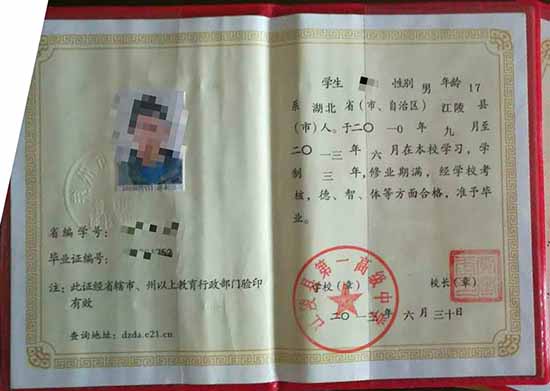 学生 性别 男 年龄 17
系 湖北 省(市、自治区) 江陵 县
(市)人。于二〇一〇年 九 月至
二〇一三年 六 月在本校学习，学
制 三 年，修业期满，经学校考
核，德、智、体等方面合格，准予毕
业。
学校(章) 校长(章)
江陵县第一高级中学
二〇一三年 六 月 三十 日
省编学号：
毕业证编号：
注：此证经省辖市、州以上教育行政部门验印
有效
查询地址：dzda.e21.cn